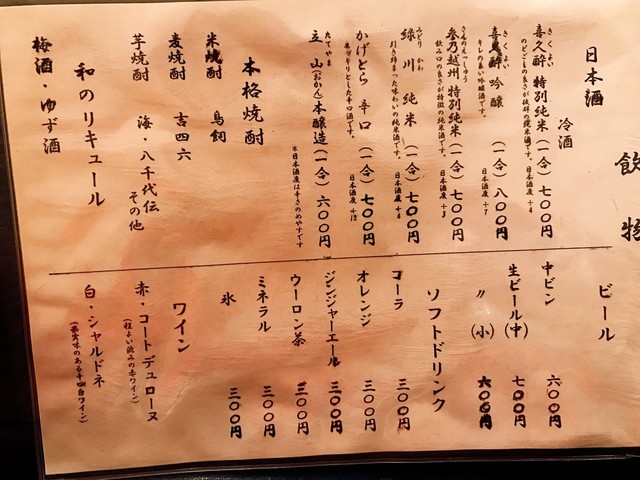 飲物
日本酒
冷酒
きくよい
喜久酔 特別純米 (一合) 七〇〇円
のどごしの良さが抜群の純米酒です。 日本酒度 +4
きくよい
喜久酔 吟醸 (一合) 八〇〇円
キレの良い吟醸酒です。 日本酒度 +7
さんのえっしゅう
参乃越州 特別純米 (一合) 七〇〇円
飲み口の良さが特徴の純米酒です。 日本酒度 +3
みどり かわ
緑川 純米 (一合) 七〇〇円
引き締まった味わいの純米酒です。
かげとら 辛口 (一合) 七〇〇円
日本酒度 +12
たてやま
立山 (おかん) 本醸造 (一合) 六〇〇円
※日本酒度は辛さのめやすです
本格焼酎
米焼酎 鳥飼
麦焼酎 吉四六
芋焼酎 海・八千代伝
その他
和のリキュール
梅酒・ゆず酒
ビール
中ビン 六〇〇円
生ビール(中) 七〇〇円
〃 (小) 六〇〇円
ソフトドリンク
コーラ 三〇〇円
オレンジ 三〇〇円
ジンジャーエール 三〇〇円
ウーロン茶 三〇〇円
ミネラル 三〇〇円
氷 三〇〇円
ワイン
赤・コートデュローヌ
(程よい渋みの赤ワイン)
白・シャルドネ